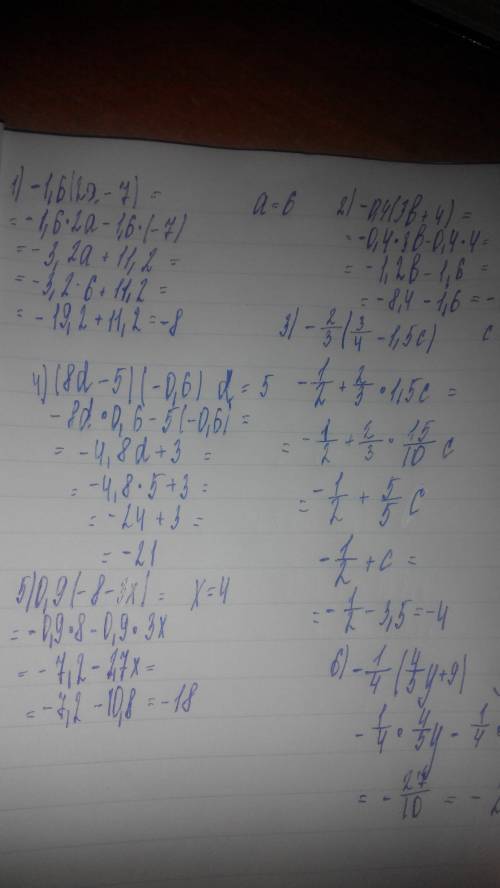 1) -1,6(2a - 7) = a = 6
= -1,6·2a - 1,6·(-7)
= -3,2a + 11,2 =
= -3,2·6 + 11,2 =
= -19,2 + 11,2 = -8
2) -0,4(3b + 4) =
= -0,4·3b - 0,4·4 =
= -1,2b - 1,6 =
= -8,4 - 1,6 = -
3) -2/3(3/4 - 1,5c) c
-1/2 + 2/3·1,5c =
= -1/2 + 2/3·15/10 c
= -1/2 + 5/5 c
-1/2 + c =
= -1/2 - 3,5 = -4
4) (8d - 5)(-0,6) d = 5
-8d·0,6 - 5(-0,6) =
= -4,8d + 3 =
= -4,8·5 + 3 =
= -24 + 3 =
= -21
5) 0,9(-8 - 3x) = x = 4
= -0,9·8 - 0,9·3x
= -7,2 - 2,7x =
= -7,2 - 10,8 = -18
6) -1/4(4/5 y + 9)
-1/4·4/5 y - 1/4
= -27/10 = -2